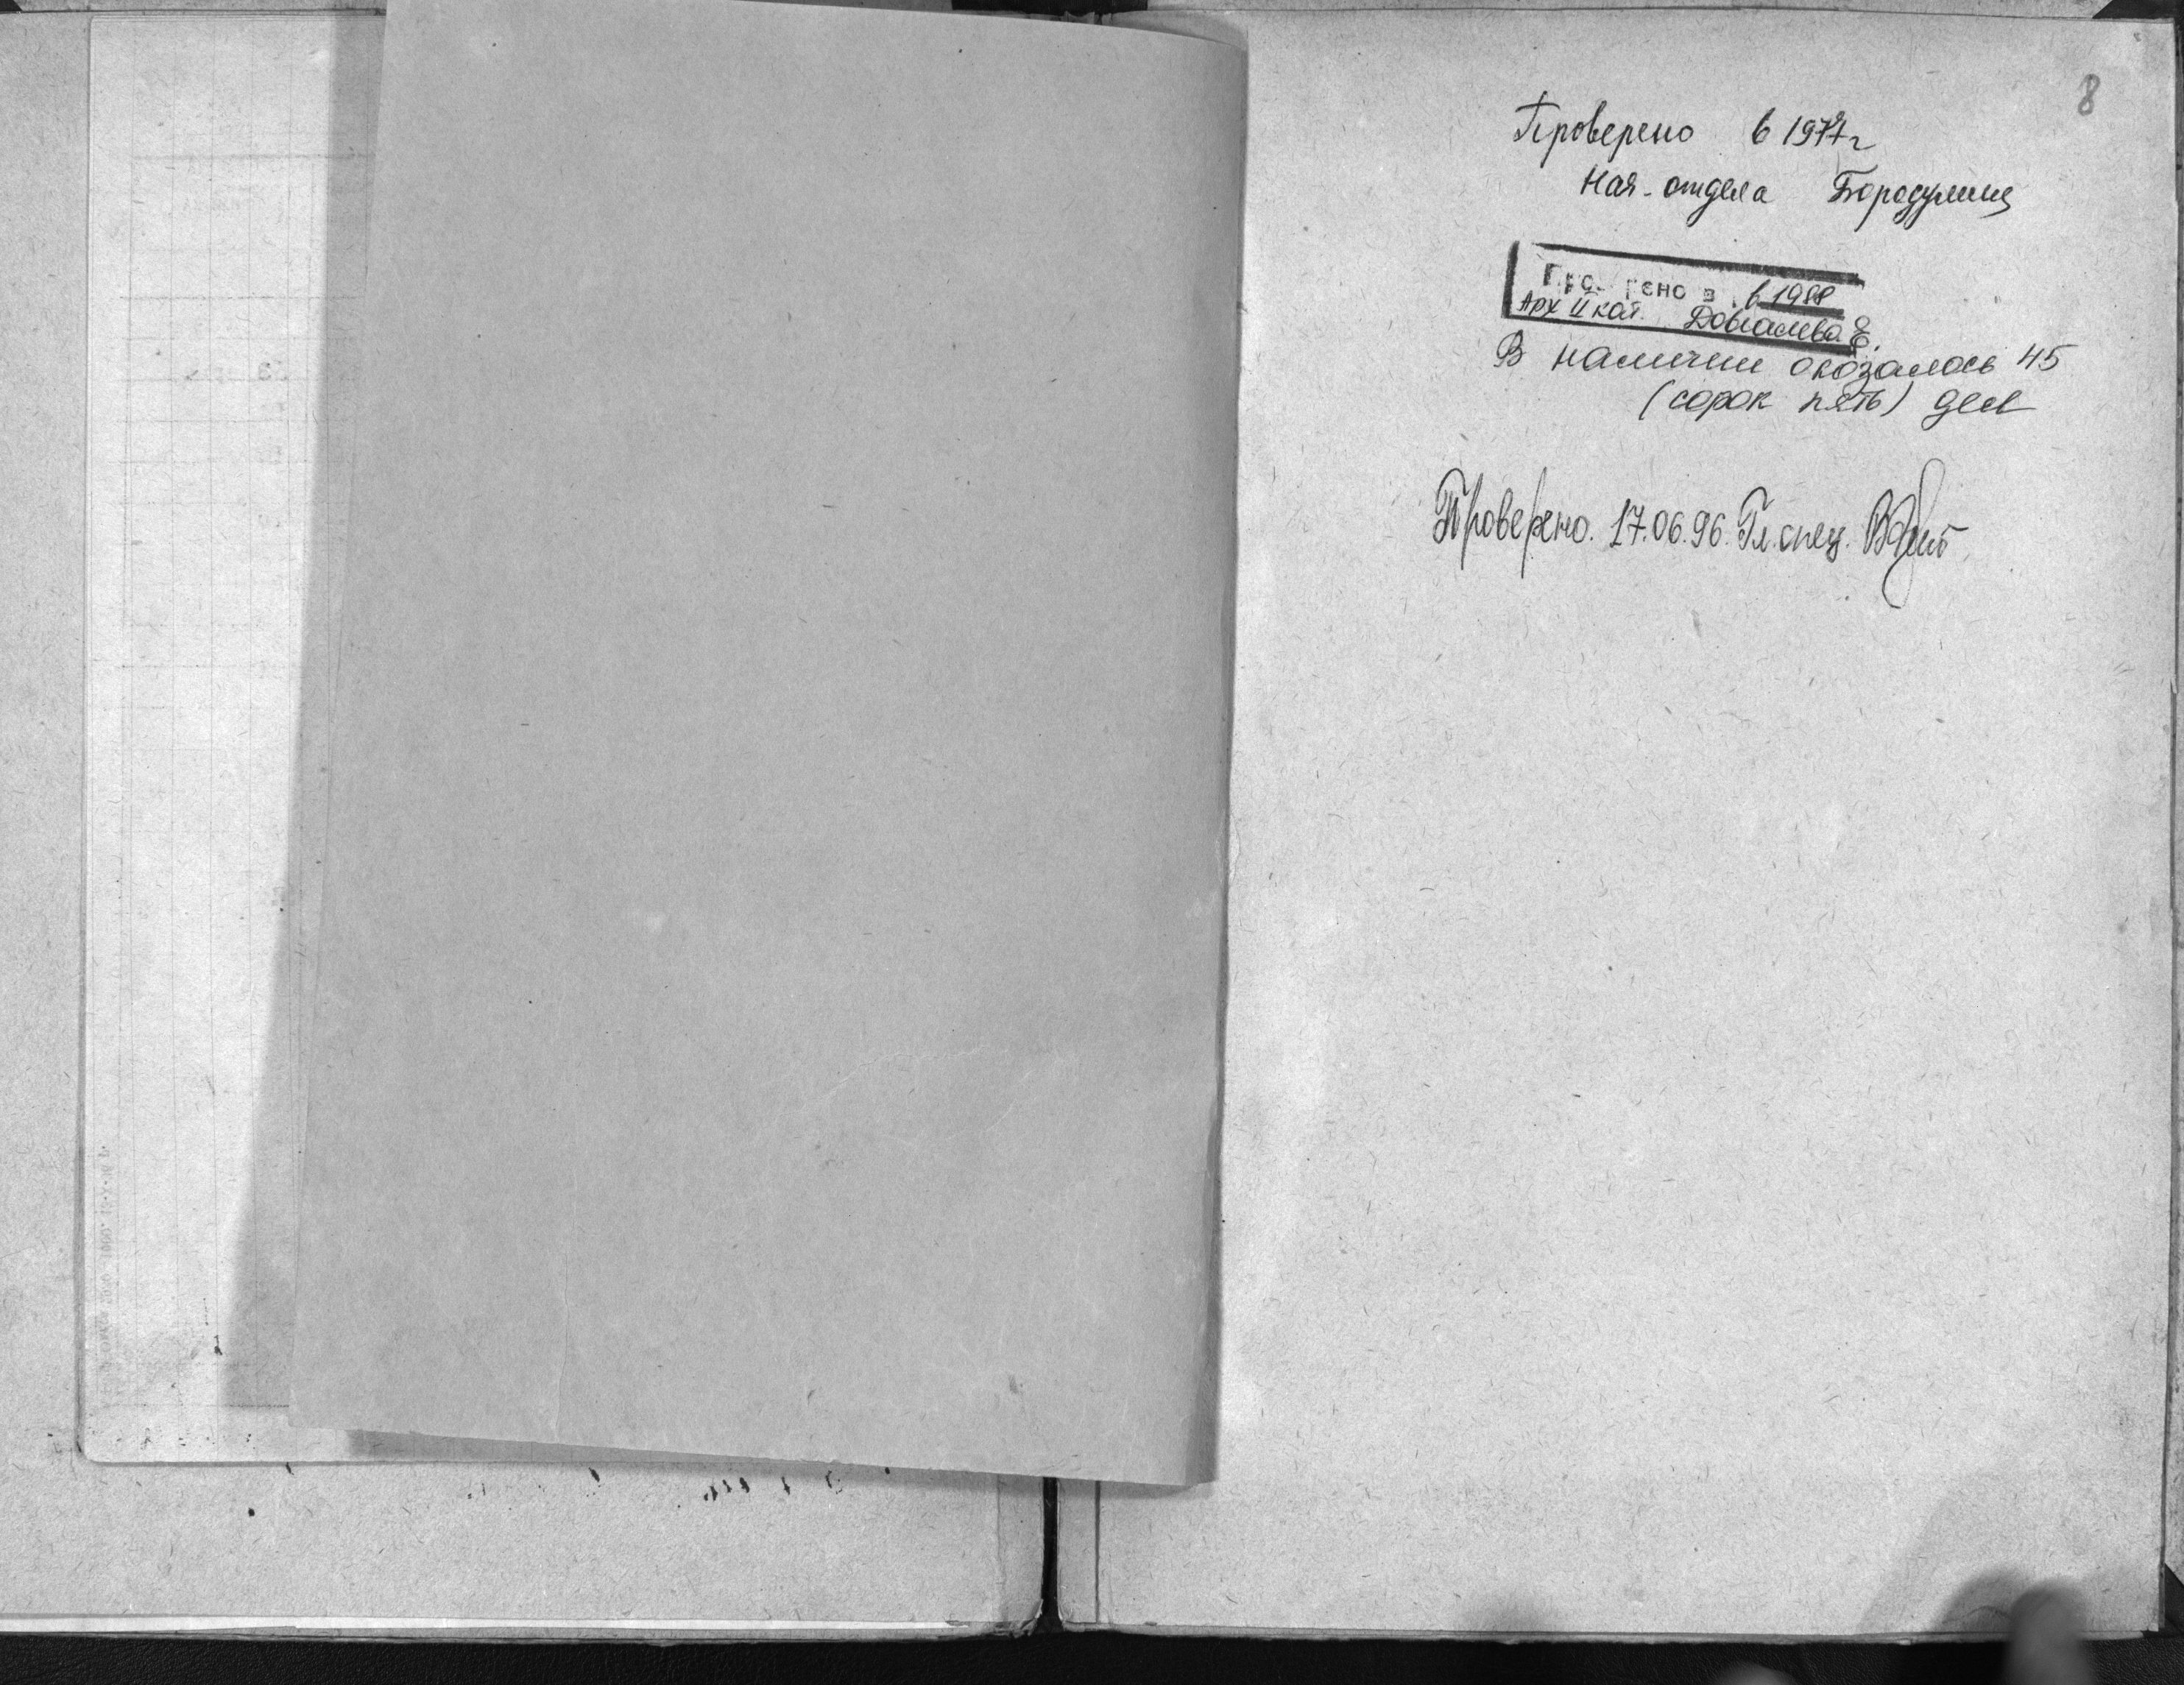 8
Проверено в 1977 г
Нач. отдела Бородулина
Проверено в 1988
Арх II кат. Е.
В наличии оказалось 45
(сорок пять) дел
Проверено. 17.06.96. Гл. спец.